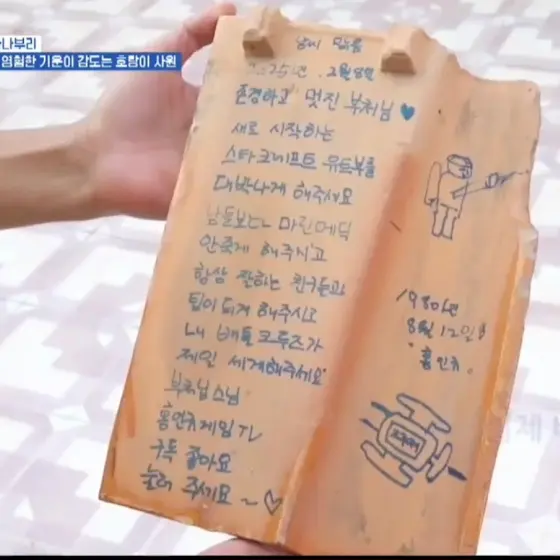 나부리
영험한 기운이 감도는 호랑이 사원
날씨 맑음
2025년 2월 8일
존경하고 멋진 부처님 ♥
새로 시작하는
스타크레프트 유튜브를
대박나게 해주세요
남들보다 마린메딕
안죽게 해주시고
항상 잘하는 친구들과
팀이 되게 해주시고
내 배틀크루즈가
제일 세게해주세요
부처님 스님
홍인규게임TV
구독 좋아요
눌러 주세요 ~ ♡
1980년
8월 12일
"홍인규"